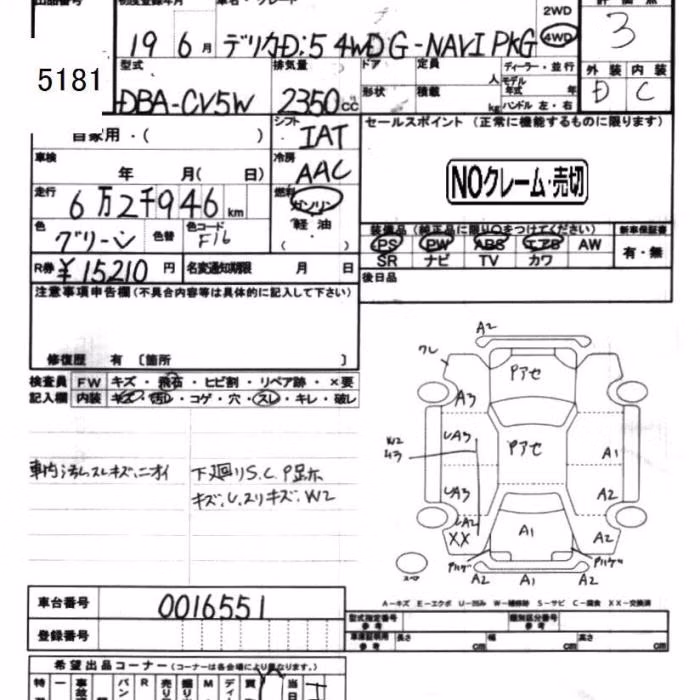 出品番号 初度登録年月 車名・グレード 評価点
5181 19 6月 デリカD:5 4WD G-NAVI PKG 2WD 4WD 3
型式 排気量 ドア 定員 人 ディーラー・並行 外装 内装
DBA-CV5W 2350cc 形状 積載 kg モデル年式 年 ハンドル 左・右 D C
自家用・( ) シフト IAT セールスポイント (正常に機能するものに限ります)
車検 年 月( 日) 冷房 AAC NOクレーム・売切
走行 6万2千946km 燃料 ガソリン
色 グリーン 色替 色コード F16 軽油 ( )
装備品 (純正品に限り○をつけてください) 新車保証書
PS PW ABS エアB AW 有・無
SR ナビ TV カワ
R券 ¥15210円 名変通知期限 月 日 後日品
注意事項申告欄 (不具合内容等は具体的に記入して下さい)
修復歴 有 〔箇所 〕
検査員 FW キズ・飛石・ヒビ割・リペア跡・×要
記入欄 内装 キズ・汚レ・コゲ・穴・スレ・キレ・破レ
車内汚レスレキズ、ニオイ 下廻りS.C
キズ、U.スリキズ、W2
A2
ワレ Pアセ
A3
W2 UA3 Pアセ A1
UA3 A2
UA2
XX A1 A2
Pハゲ Pハゲ
スペア A2 A1 A2
A-キズ E-エクボ U-凹み W-補修跡 S-サビ C-腐食 XX-交換済
車台番号 0016551
型式指定番号 参考 類別区分番号 参考
登録番号 車庫証明用 参考 長さ cm 幅 cm 高さ cm
希望出品コーナー (コーナーは各会場により異なります。)